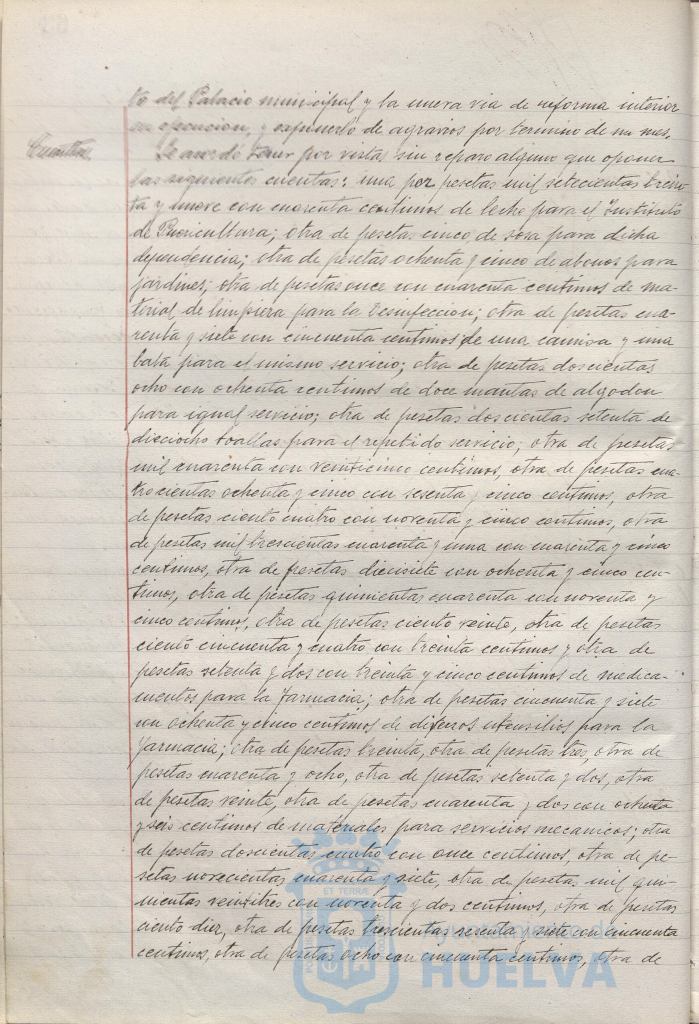 to del Palacio municipal y la nueva via de reforma interior
en operacion, y exponerlo de agravios por termino de un mes.
Cuentas.
Se acordó tener por vistas sin reparo alguno que oponer
las siguientes cuentas: una por pesetas mil setecientas trein-
ta y nueve con cuarenta centimos de leche para el Instituto
de Puericultura; otra de pesetas cinco de sosa para dicha
dependencia; otra de pesetas ochenta y cinco de abonos para
jardines; otra de pesetas once con cuarenta centimos de ma-
terial de limpieza para la Desinfeccion; otra de pesetas cua-
renta y siete con cincuenta centimos de una camisa y una
bata para el mismo servicio; otra de pesetas doscientas
ocho con ochenta centimos de doce mantas de algodon
para igual servicio; otra de pesetas doscientas setenta de
dieciocho toallas para el repetido servicio; otra de pesetas
mil cuarenta con veinticinco centimos, otra de pesetas cua-
trocientas ochenta y cinco con sesenta y cinco centimos, otra
de pesetas ciento cuatro con noventa y cinco centimos, otra
de pesetas mil trescientas cuarenta y una con cuarenta y cinco
centimos, otra de pesetas diecisiete con ochenta y cinco cen-
timos, otra de pesetas quinientas cuarenta con noventa y
cinco centimos, otra de pesetas ciento veinte, otra de pesetas
ciento cincuenta y cuatro con treinta centimos y otra de
pesetas setenta y dos con treinta y cinco centimos de medica-
mentos para la Farmacia; otra de pesetas cincuenta y siete
con ochenta y cinco centimos de diversos utensilios para la
farmacia; otra de pesetas treinta, otra de pesetas tres, otra de
pesetas cuarenta y ocho, otra de pesetas setenta y dos, otra
de pesetas veinte, otra de pesetas cuarenta y dos con ochenta
y seis centimos de materiales para servicios mecanicos; otra
de pesetas doscientas cuatro con once centimos, otra de pe-
setas novecientas cuarenta y siete, otra de pesetas mil qui-
nientas veintitres con noventa y dos centimos, otra de pesetas
ciento diez, otra de pesetas trescientas sesenta y siete con cincuenta
centimos, otra de pesetas ocho con cincuenta centimos, otra de
ET TERRÆ
HUELVA